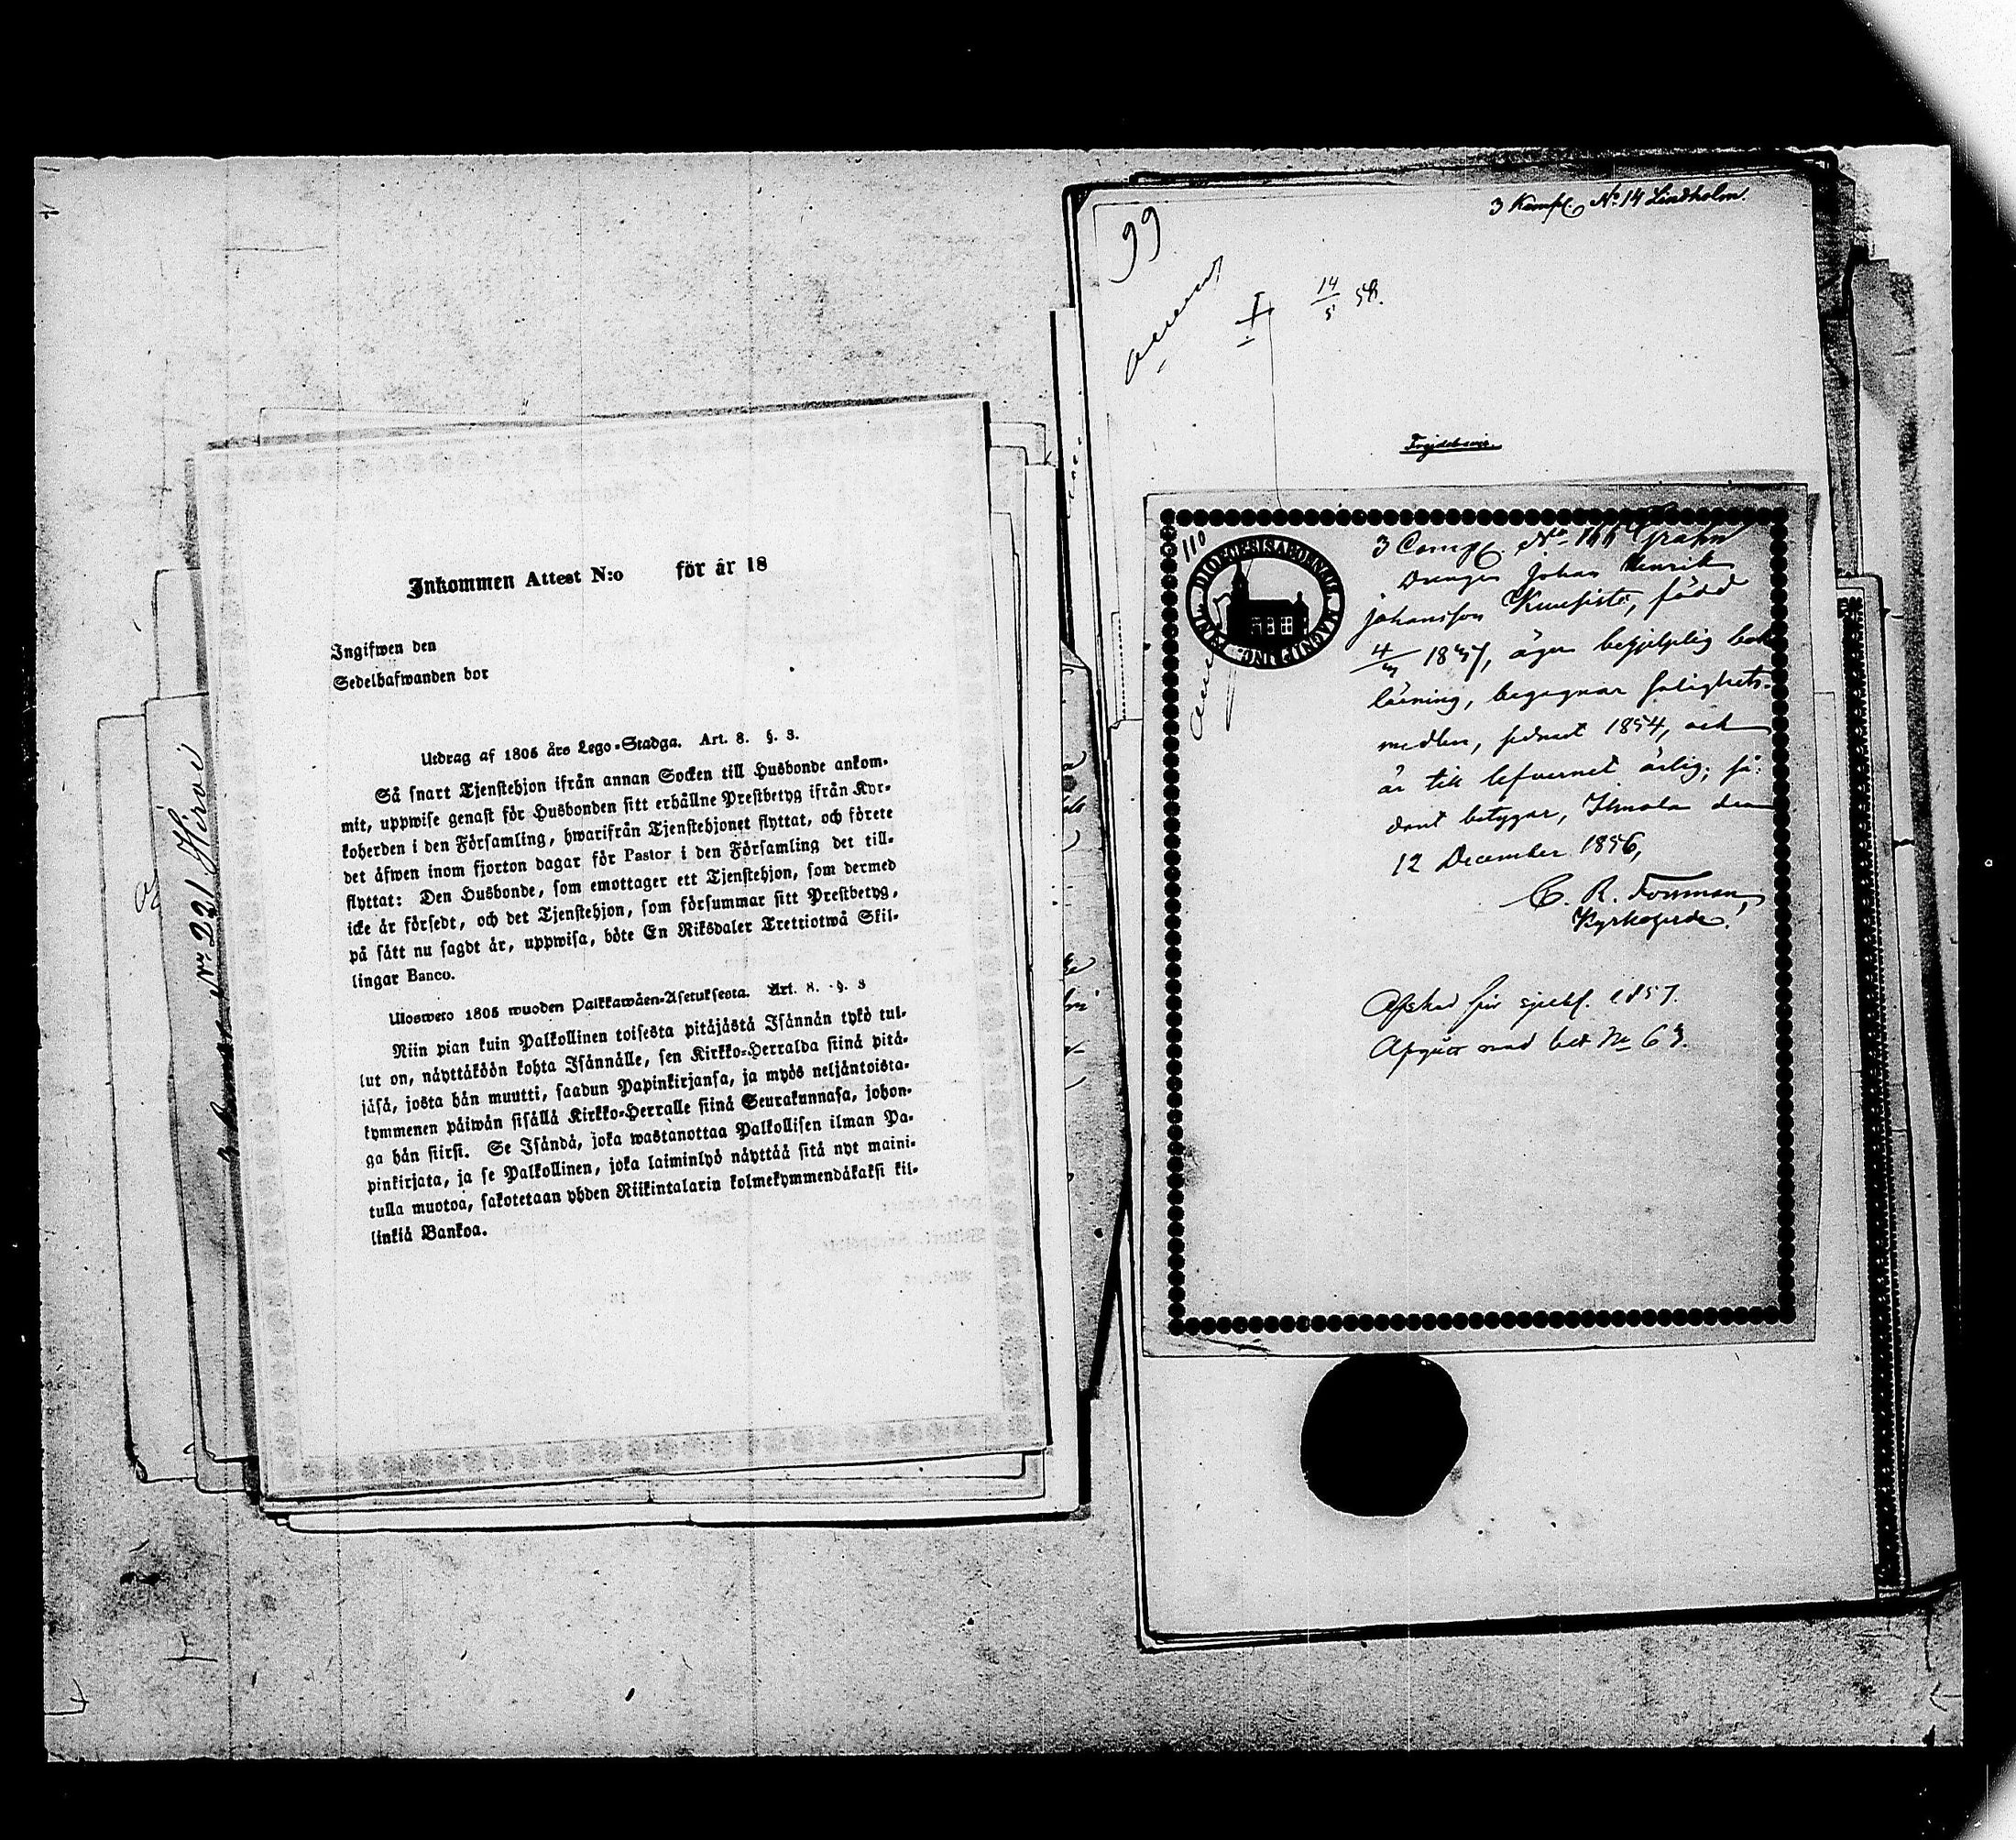 Inkommen Attest N:o för år 18
Ingifwen den
Sedelhafwanden bor
Utdrag af 1805 års Lego-Stadga. Art. 8. §. 3.
Så snart Tjenstehjon ifrån annan Socken till Husbonde ankom-
mit, uppwise genast för Husbonden sitt erhållne Prestbetyg ifrån Kyr-
koherden i den Församling, hwarifrån Tjenstehjonet flyttat, och förete
det äfwen inom fjorton dagar för Pastor i den Församling det till-
flyttat: Den Husbonde, som emottager ett Tjenstehjon, som dermed
icke är försedt, och det Tjenstehjon, som försummar sitt Prestbetyg,
på sätt nu sagdt är, uppwisa, böte En Riksdaler Trettiotwå Skil-
lingar Banco.
Ulosweto 1805 wuoden Palkkawäen-Asetuksesta. Art. 8. §. 3
Niin pian kuin Palkollinen toisesta pitäjästä Isännän tykö tul-
lut on, näyttäköön kohta Isännälle, sen Kirkko-Herralda siinä pitä-
jäsä, josta hän muutti, saadun Papinkirjansa, ja myös neljäntoista-
kymmenen päiwän sisällä Kirkko-Herralle siinä Seurakunnasa, johon-
ga hän siirsi. Se Isändä, joka wastanottaa Palkollisen ilman Pa-
pinkirjata, ja se Palkollinen, joka laiminlyö näyttää sitä nyt maini-
tulla muotoa, sakotetaan yhden Riikintalarin kolmekymmendäkaksi kil-
linkiä Bankoa.
No 221 Hirvi
3 Komp. No 14 Lindholm.
99
14/5 58.
Frejdebevis.
110
DIOECESIS ABOENSIS MAGNIPRINC: FINL
3 Comp. No 144 Grahn
Drengen Johan Henrik
Johansson Kuusisto, född
1837, äger behjelplig bok
läsning, begagnar salighets-
medlen, sednast 1854, och
är till lefvernet ärlig; så-
dant betygar, Ilmola den
12 December 1856,
C. R. Forsman,
Kyrkoherde.
Afsked för sjukl. 1857.
Afgått med bet No 63.